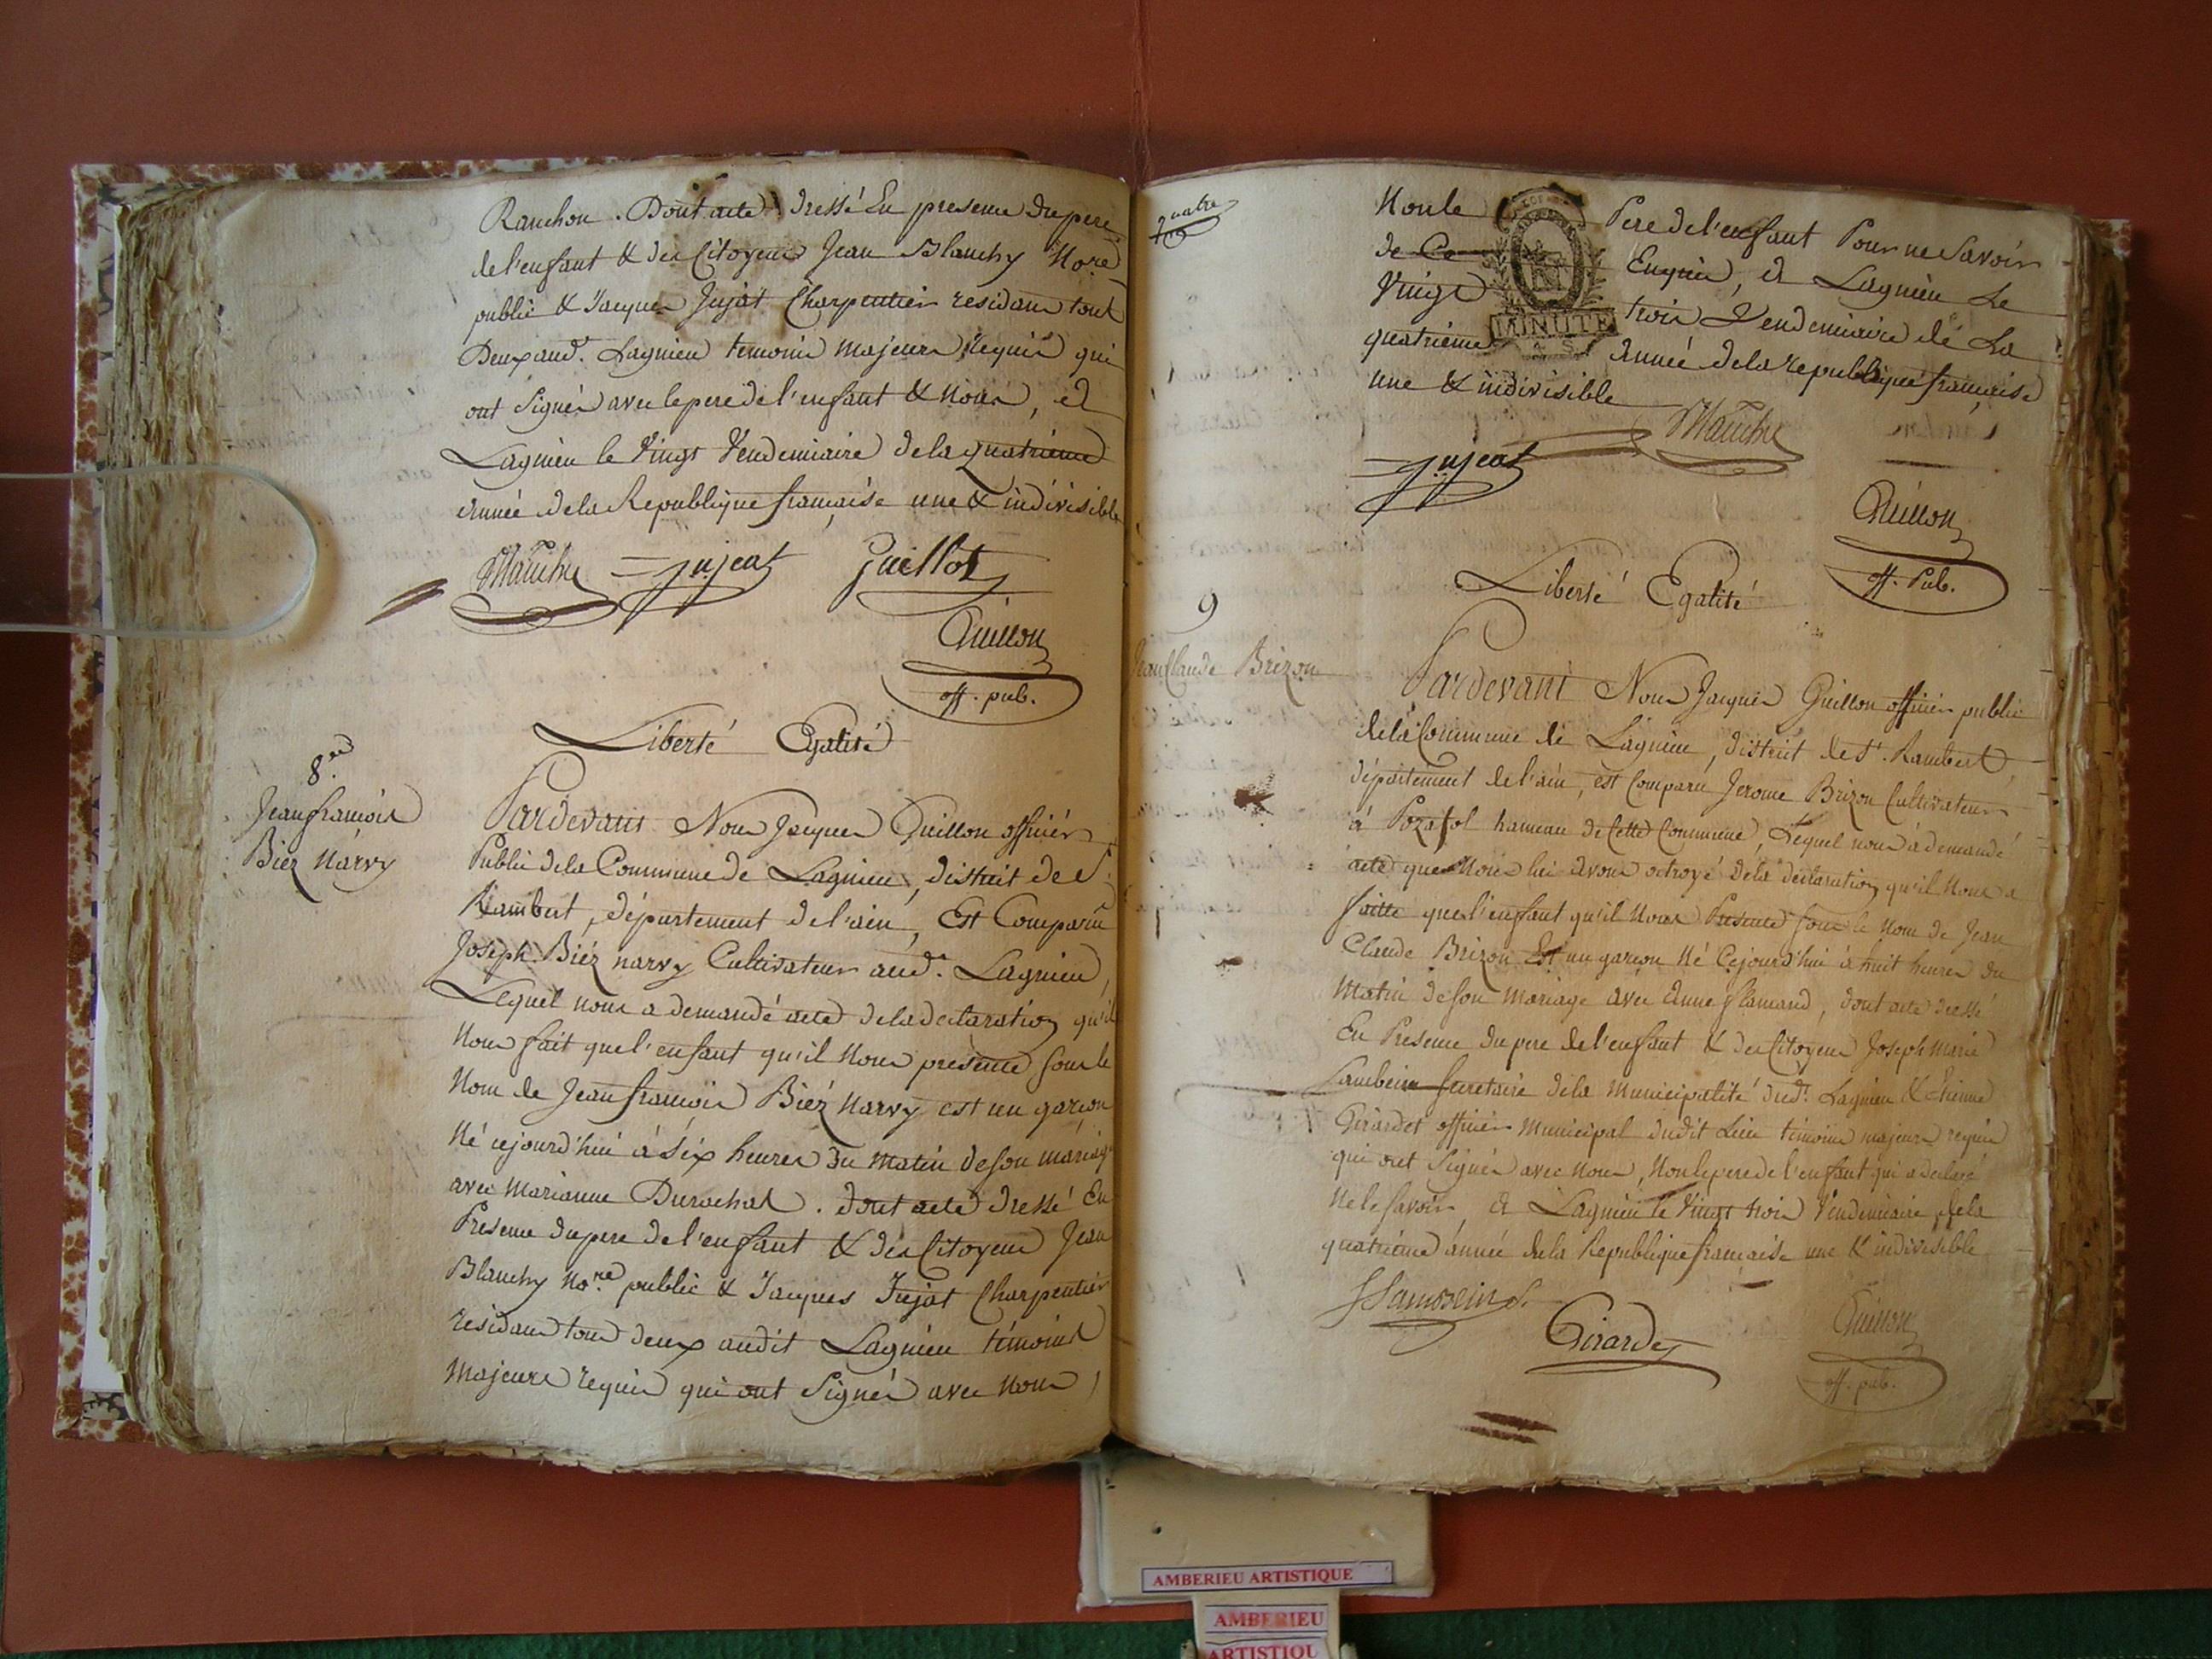 Ranchon. Dont acte dressé En presence du pere
de l'enfant & des Citoyens Jean Blanchy No.re
public & Jacques Jujat Charpentier residans tout
Deux aud.t Lagnieu temoins majeurs requis qui
ont Signés avec le pere de l'enfant & Nous, à
Lagnieu le Vingt Vendemiaire de la quatrieme
année de la Republique francaise une & indivisible
Blanchy Jujeat Guillot
Guillon
off. pub.
Liberté Egalité
8.me
Jean francois
Biéz Narvy
Pardevant Nous Jacques Guillon officiér
Public de la Commune de Lagnieu, district de S.t
Rambert, département de l'ain, Est Comparu
Joseph Biéz narvy Cultivateur aud.t Lagnieu,
Lequel nous a demandé acte de la declaration qu'il
Nous fait que l'enfant qu'il Nous presente sous le
Nom de Jean francois Biéz Narvy est un garcon
Né cejourd'hui à Six heures du matin de son mariage
avec Marianne Durochat. dont acte dressé En
Presence du pere de l'enfant & des Citoyens Jean
Blanchy No.re public & Jacques Jujat Charpentier
residans tous deux audit Lagnieu témoins
Majeurs requis qui ont Signés avec Nous,
quatre
Non le Pere de l'enfant Pour ne Savoir
de Ce Enquis, à Lagnieu Le
Vingt trois Vendemiaire de La
quatrieme Année de la republique francaise
une & indivisible
MINUTE
Blanchy
Jujeat
Guillon
off. Pub.
Liberté Egalité
9
Jean Claude Brizon
Pardevant Nous Jacques Guillon officier public
de la Commune de Lagnieu, district de S.t Rambert,
département de l'ain, est Comparu Jerome Brizon Cultivateur
à Pozafol hameau de Cette Commune, Lequel nous à demandé
acte que Nous lui avons octroyé de la declaration qu'il Nous a
faitte que l'enfant qu'il Nous Presente sous le Nom de Jean
Claude Brizon Est un garcon Né Cejourd'hui à huit heures du
Matin de son mariage avec Anne flamand, dont acte dressé
En Presence du pere de l'enfant & des Citoyens Joseph Marie
Secretaire de la Municipalité dud.t Lagnieu & Etienne
Girardet officier Municipal dudit Lieu témoins majeurs requis
qui ont Signés avec Nous, Non le pere de l'enfant qui a declaré
Ne le Savoir à Lagnieu le Vingt trois Vendemiaire de la
quatrieme année de la Republique francaise une & indivisible
Girardet
Guillon
off. pub.
AMBERIEU ARTISTIQUE
AMBERIEU